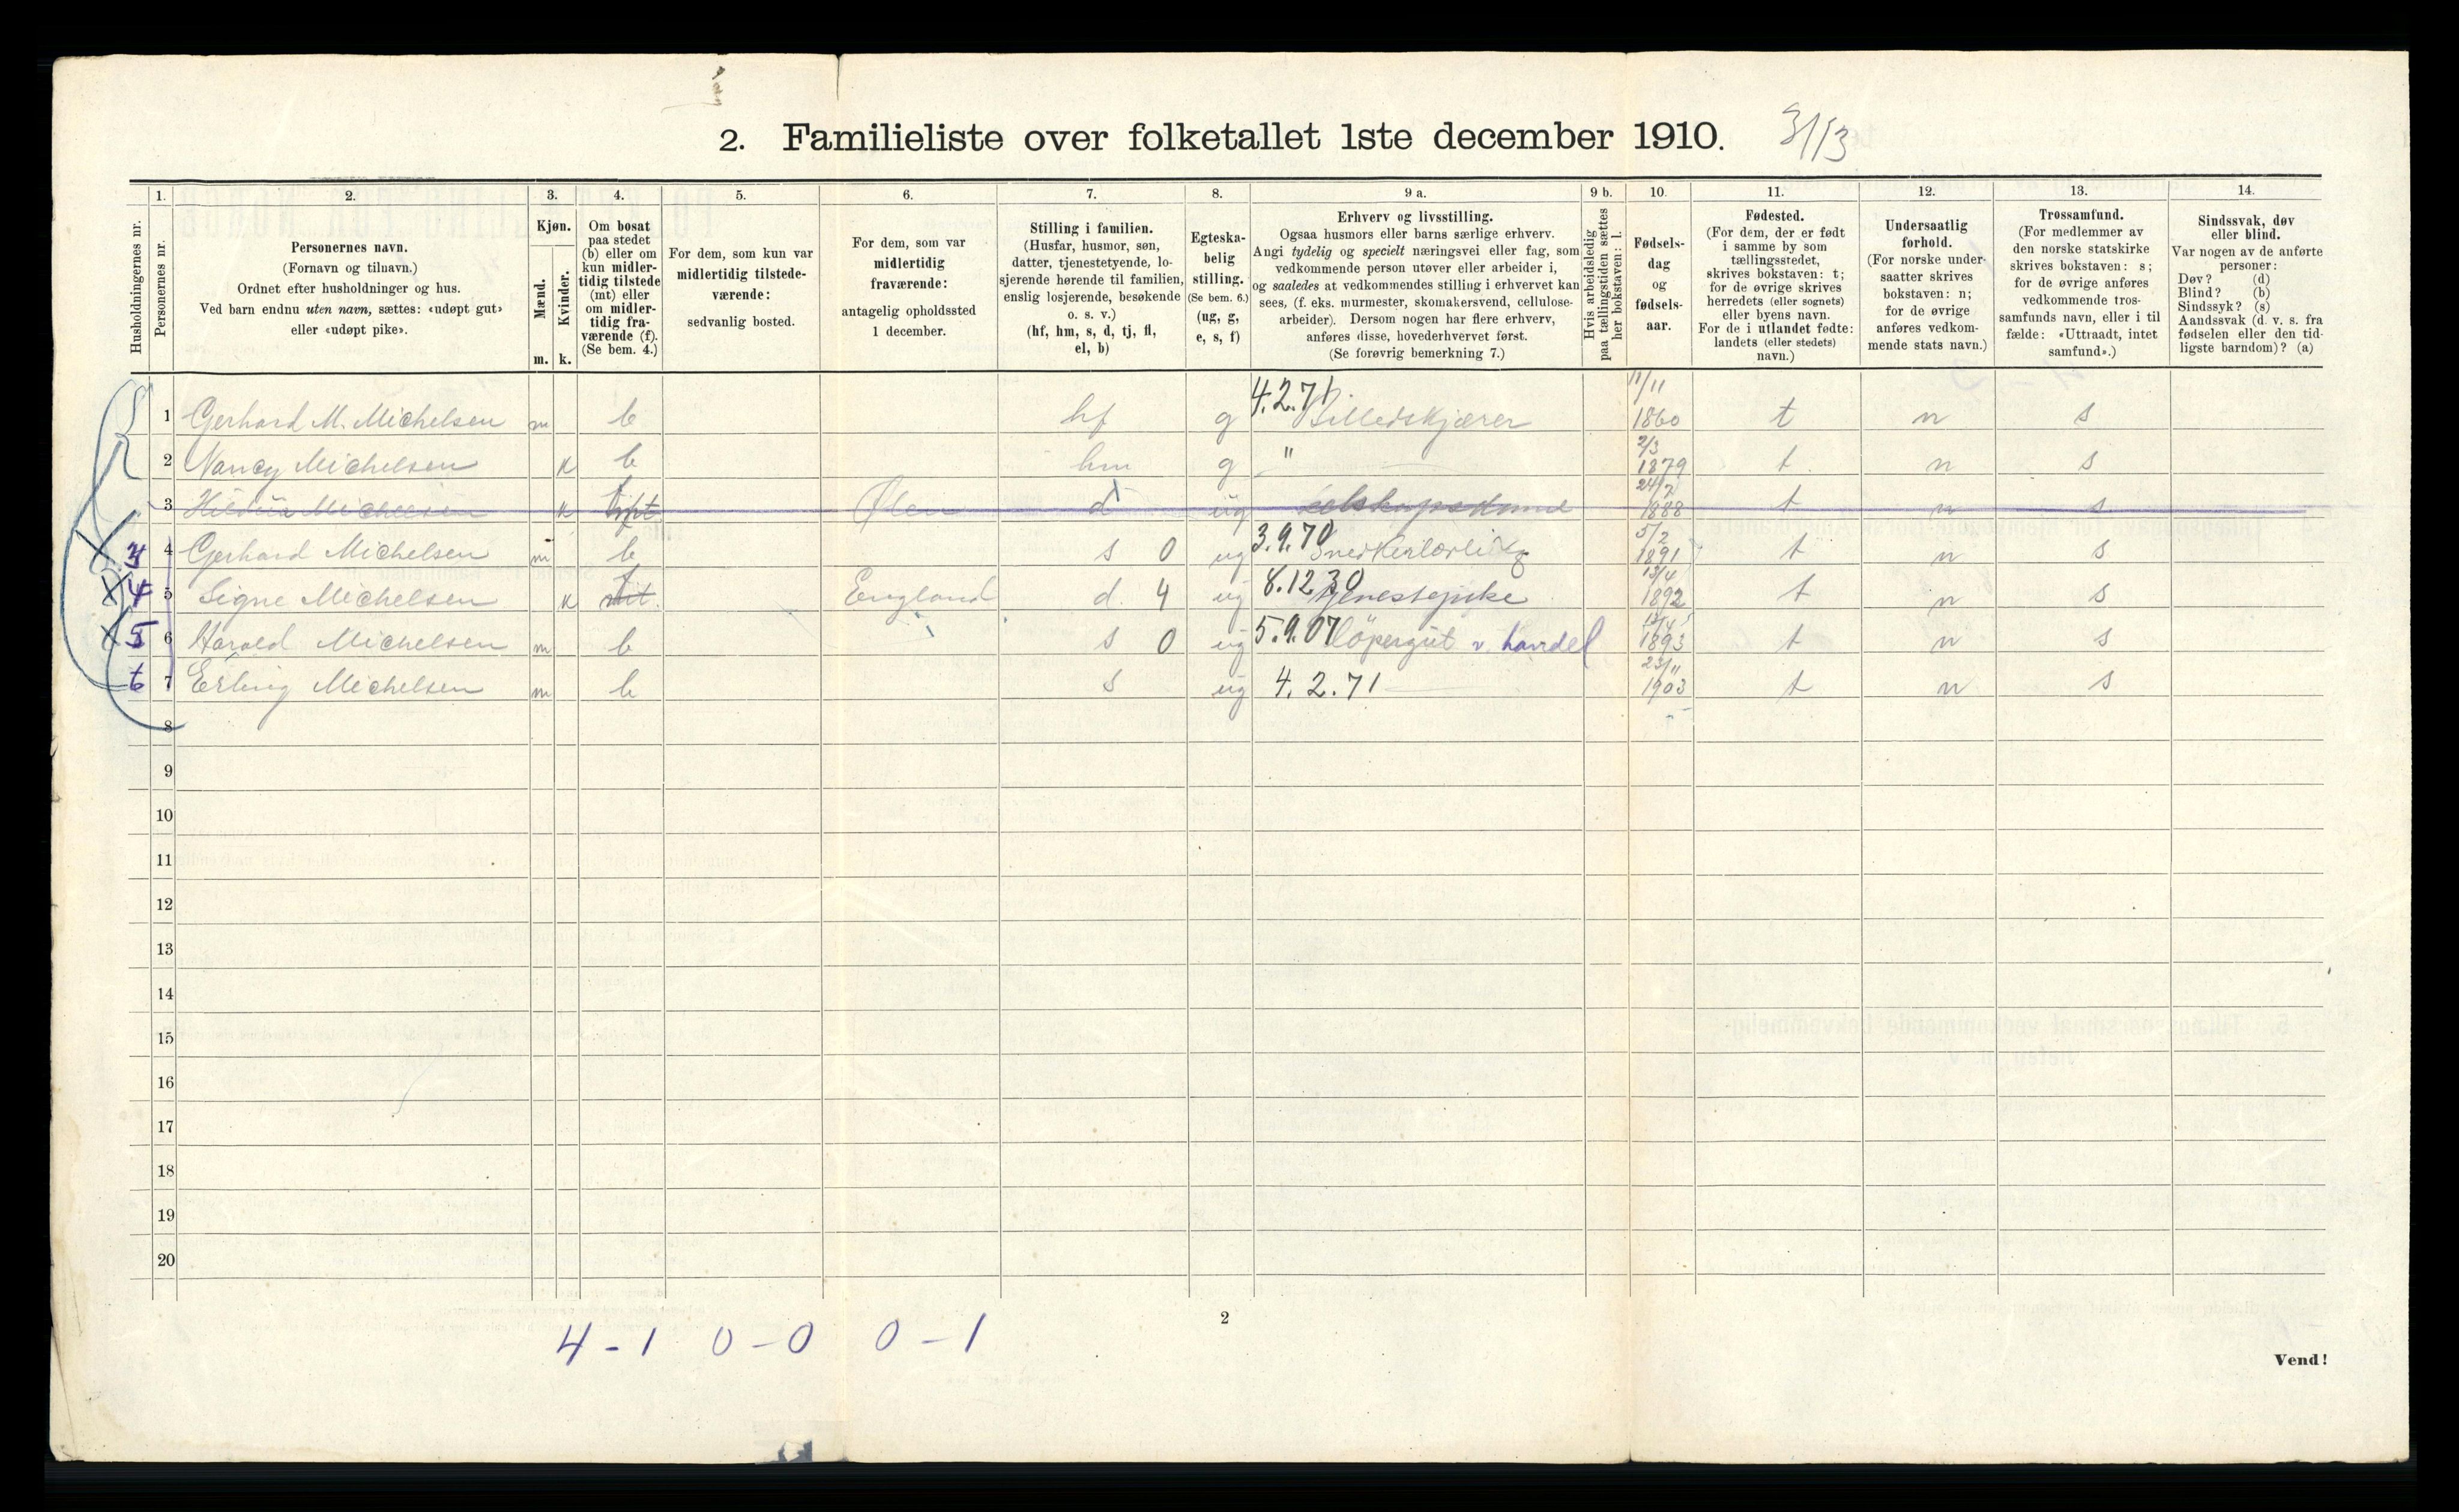 2. Familieliste over folketallet 1ste december 1910. 3113
Husholdningernes nr.
1. Personernes nr.
2. Personernes navn.
(Fornavn og tilnavn.)
Ordnet efter husholdninger og hus.
Ved barn endnu uten navn, sættes: «udøpt gut»
eller «udøpt pike».
3. Kjøn.
Mænd. m.
Kvinder. k.
4. Om bosat
paa stedet
(b) eller om
kun midler-
tidig tilstede
(mt) eller
om midler-
tidig fra-
værende (f).
(Se bem. 4.)
5. For dem, som kun var
midlertidig tilstede-
værende:
sedvanlig bosted.
6. For dem, som var
midlertidig
fraværende:
antagelig opholdssted
1 december.
7. Stilling i familien.
(Husfar, husmor, søn,
datter, tjenestetyende, lo-
sjerende hørende til familien,
enslig losjerende, besøkende
o. s. v.)
(hf, hm, s, d, tj, fl,
el, b)
8. Egteska-
belig
stilling.
(Se bem. 6.)
(ug, g,
e, s, f)
9 a. Erhverv og livsstilling.
Ogsaa husmors eller barns særlige erhverv.
Angi tydelig og specielt næringsvei eller fag, som
vedkommende person utøver eller arbeider i,
og saaledes at vedkommendes stilling i erhvervet kan
sees, (f. eks. murmester, skomakersvend, cellulose-
arbeider). Dersom nogen har flere erhverv,
anføres disse, hovederhvervet først.
(Se forøvrig bemerkning 7.)
9 b. Hvis arbeidsledig
paa tællingstiden sættes
her bokstaven: l.
10. Fødsels-
dag
og
fødsels-
aar.
11. Fødested.
(For dem, der er født
i samme by som
tællingsstedet,
skrives bokstaven: t;
for de øvrige skrives
herredets (eller sognets)
eller byens navn.
For de i utlandet fødte:
landets (eller stedets)
navn.)
12. Undersaatlig
forhold.
(For norske under-
saatter skrives
bokstaven: n;
for de øvrige
anføres vedkom-
mende stats navn.)
13. Trossamfund.
(For medlemmer av
den norske statskirke
skrives bokstaven: s;
for de øvrige anføres
vedkommende tros-
samfunds navn, eller i til
fælde: «Uttraadt, intet
samfund».)
14. Sindssvak, døv
eller blind.
Var nogen av de anførte
personer:
Døv? (d)
Blind? (b)
Sindssyk? (s)
Aandssvak (d. v. s. fra
fødselen eller den tid-
ligste barndom)? (a)
1 Gerhard M. Michelsen m b hf g 4.2.71. Billedskjærer 11/11 1860 t n s
2 Nancy Michelsen k b hm g " 2/3 1879 t n s
3 Michelsen k Ølen d ug 24/7 1888 t n s
3 4 Gerhard Michelsen m b s 0 ug 3.9.70 Snedkerlærling 5/2 1891 t n s
4 5 Signe Michelsen k f England d. 4 ug 8.12.30 Tjenestepike 13/4 1892 t n s
5 6 Harald Michelsen m b s 0 ug 5.9.07 löpergut v. handel 1893 t n s
6 7 Erling Michelsen m b s ug 4.2.71 23/11 1903 t n s
8
9
10
11
12
13
14
15
16
17
18
19
20
2
4 - 1 0 - 0 0 - 1
Vend!